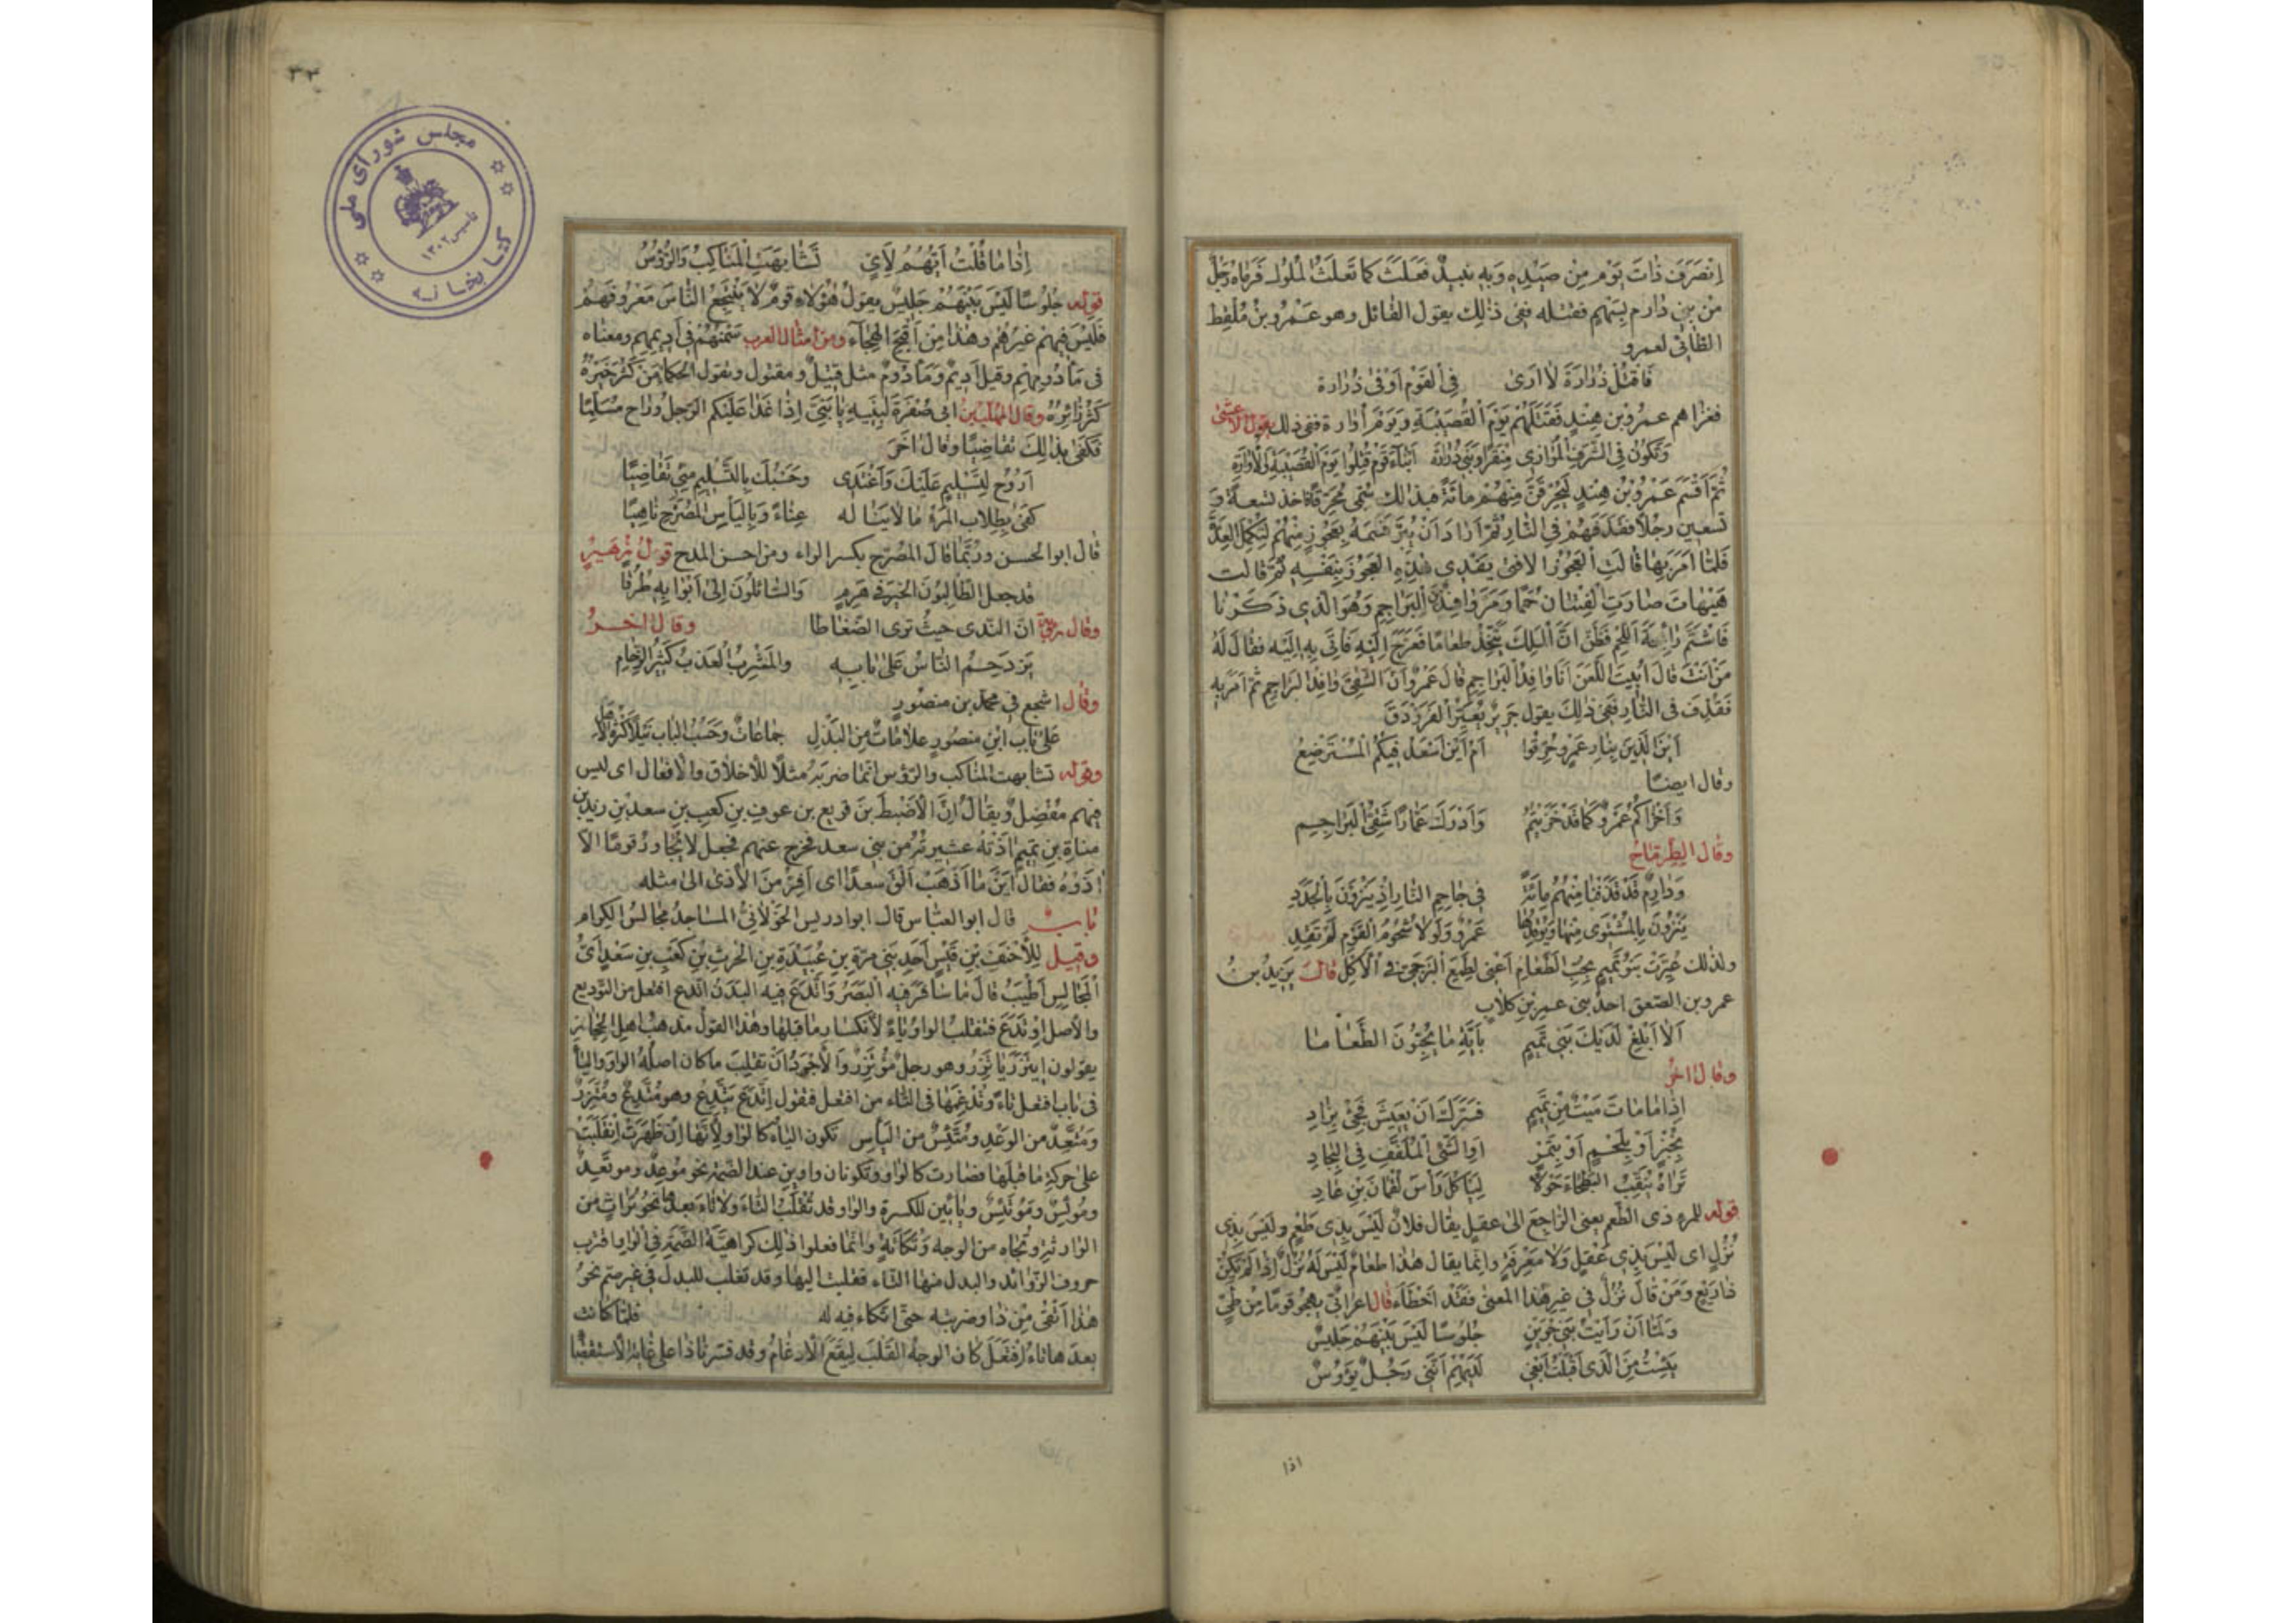 انصرف ذات يوم من صيده وبه نبيذ فعبث كما تعبث الملوك فرماه رجل
من بني دارم بسهم فقتله ففي ذلك يقول القائل وهو عمرو بن ملقط
الطائي لعمرو
فاقتل زرارة لا ارى في القوم اوفى من زرارة
فغزاهم عمرو بن هند فقتلهم يوم القصيبة ويوم أوارة ففي ذلك يقول الأعشى
وتكون في الشرف الموازي منقرا وبني زرارة ابناء قوم قتلوا يوم القصيبة والأوارة
ثم أقسم عمرو بن هند ليحرقن منهم مائة فبذلك سمي محرقا فاخذ تسعة و
تسعين رجلا فقذفهم في النار ثم أراد أن يبر قسمه بعجوز منهم لتكمل العدة
فلما أمر بها قالت العجوز ألا فتى يفدي هذه العجوز بنفسه ثم قالت
هيهات صارت الفتيان حمما ومر وافد البراجم وهو الذي ذكرنا
فاشتم رائحة اللحم فظن ان الملك يتخذ طعاما فعرج اليه فأتي به إليه فقال له
من أنت قال أبيت اللعن أنا وافد البراجم قال عمرو ان الشقي وافد البراجم ثم أمر به
فقذف في النار ففي ذلك يقول جرير يعير الفرزدق
أين الذين بنار عمرو حرقوا أم أين أسعد فيكم المسترضع
وقال ايضا
وأخزاكم عمرو كما قد خزيتم وأدرك عمارا شقي البراجم
وقال الطرماح
ودارم قد قذفنا منهم مائة في جاحم النار إذ ينزون بالجدد
ينزون بالمشتوى منها ويوقدها عمرو ولولا شحوم القوم لم تقد
ولذلك عيرت بنو تميم بحب الطعام أعني لطمع البرجمي في الأكل قال يزيد بن
عمرو بن الصعق احد بني عمرو بن كلاب
ألا أبلغ لديك بني تميم بآية ما يحبون الطعاما
وقال اخر
إذا ما مات ميت من تميم فسرك أن يعيش فجئ بزاد
بخبز أو بلحم أو بتمر او الشئ الملفف في البجاد
تراه ينقب البطحاء حولا ليأكل رأس لقمان بن عاد
قوله للمرء ذى الطعم يعنى الراجع الى عقل يقال فلان ليس بذى طعم وليس بذى
نزل اى ليس بذي عقل ولا معرفة وانما يقال هذا طعام ليس له نزل إذا لم يكن
ذا ريع ومن قال نزل في غير هذا المعنى فقد أخطأ قال اعرابي يهجو قوما من طي
ولما أن رأيت بني جوين جلوسا ليس بينهم جليس
يئست من الذى أقبلت أبغي لديهم أنني رجل يؤوس
اذا
٣٣
مجلس شورای ملی
کتابخانه
تأسیس ١٣٠٢
إذا ما قلت أيهم لأي تشابهت المناكب والرؤس
قوله جلوسا ليس بينهم جليس يقول هؤلاء قوم لا ينتجع الناس معروفهم
فليس فيهم غيرهم وهذا من أقبح الهجاء ومن امثال العرب سمنهم في أديمهم ومعناه
في مأدومهم وقيل أديم ومأدوم مثل قتيل ومقتول وتقول الحكماء من كثر خيره
كثر زائره وقال المهلب بن ابي صفرة لبنيه يا بني إذا غدا عليكم الرجل وراح مسلما
فكفى بذلك تقاضيا وقال آخر
أروح لتسليم عليك وأغتدى وحسبك بالتسليم مني تقاضيا
كفى بطلاب المرء ما لا يناله عناء وباليأس المصرح ناهيا
قال ابو الحسن وربما قال المصرح بكسر الراء ومن احسن المدح قول زهير
قد جعل الطالبون الخير في هرم والسائلون إلى أبوابه طرقا
وقال رؤبة ان الندى حيث ترى الضغاطا وقال اخر
يزدحم الناس على بابه والمشرب العذب كثير الزحام
وقال اشجع في محمد بن منصور
على باب ابن منصور علامات من البذل جماعات وحسب الباب نبلا كثرة الأهل
وقوله تشابهت المناكب والرؤس انما ضربه مثلا للاخلاق والافعال اى ليس
فيهم مفضل ويقال إن الأضبط بن قريع بن عوف بن كعب بن سعد بن زيد
مناة بن تميم آذته عشيرته من بني سعد فخرج عنهم فجعل لا يجاور قوما الا
آذوه فقال أينما أذهب ألق سعدا اى أفر من الأذى الى مثله
باب قال ابو العباس قال ابو ادريس الخولاني المساجد مجالس الكرام
وقيل للأحنف بن قيس أحد بني مرة بن عبيدة بن الحرث بن كعب بن سعد أي
المجالس أطيب قال ما سافر فيه البصر واتدع فيه البدن اتدع افتعل من التوديع
والأصل اوتدع فتقلب الواو ياء لانكسار ما قبلها وهذا القول مذهب أهل الحجاز
يقولون ايتزر ياتزر وهو رجل موتزر والأجود أن تقلب ما كان اصله الواو والياء
في باب افتعل تاء وتدغمها في التاء من افتعل فتقول اتدع يتدع وهو متدع ومتزر
ومتعد من الوعد ومتئس من اليأس تكون الياء كالواو لأنها إن ظهرت انقلبت
على حركة ما قبلها فصارت كالواو وتكونان واوين عند الضمة نحو موعد وموتعد
وموئس وموتئس وياءين للكسرة والواو قد تقلب التاء ولا تاء بعدها نحو تراث من
الوارثة وتجاه من الوجه وتكأة وانما فعلوا ذلك كراهية الضمة في الواو اقرب
حروف الزوائد والبدل منها التاء فقلبت اليها وقد تقلب للبدل في غير ضم نحو
هذا أتقى من ذا وضربته حتى اتكاء فيه له فلما كانت
بعدها تاء افتعل كان الوجه القلب ليقع الادغام وقد فسرنا ذا على غاية الاستقصاء